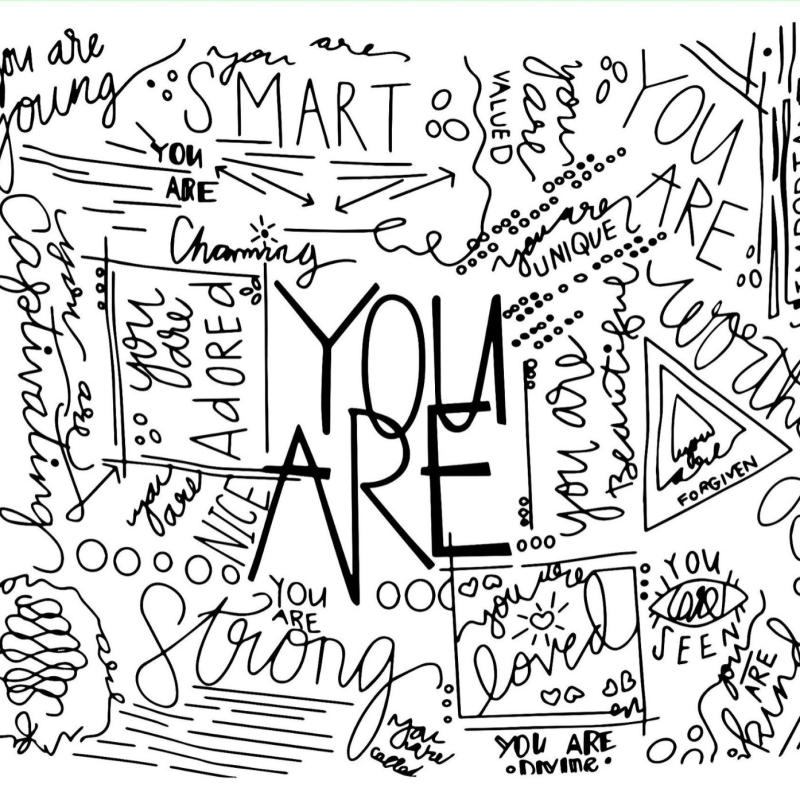 you are
young
you are
SMART
VALUED
you are
YOU
ARE
IMPORTANT
YOU
ARE
Charming
you are
UNIQUE
Captivating
you are
you are
AdOREd
YOU
ARE
you are
Beautiful
worth
you
are
FORGIVEN
you
are
NICE
YOU
ARE
Strong
you are
loved
YOU
are
SEEN
you
ARE
kind
are
you
are
called
YOU ARE
DIVINE